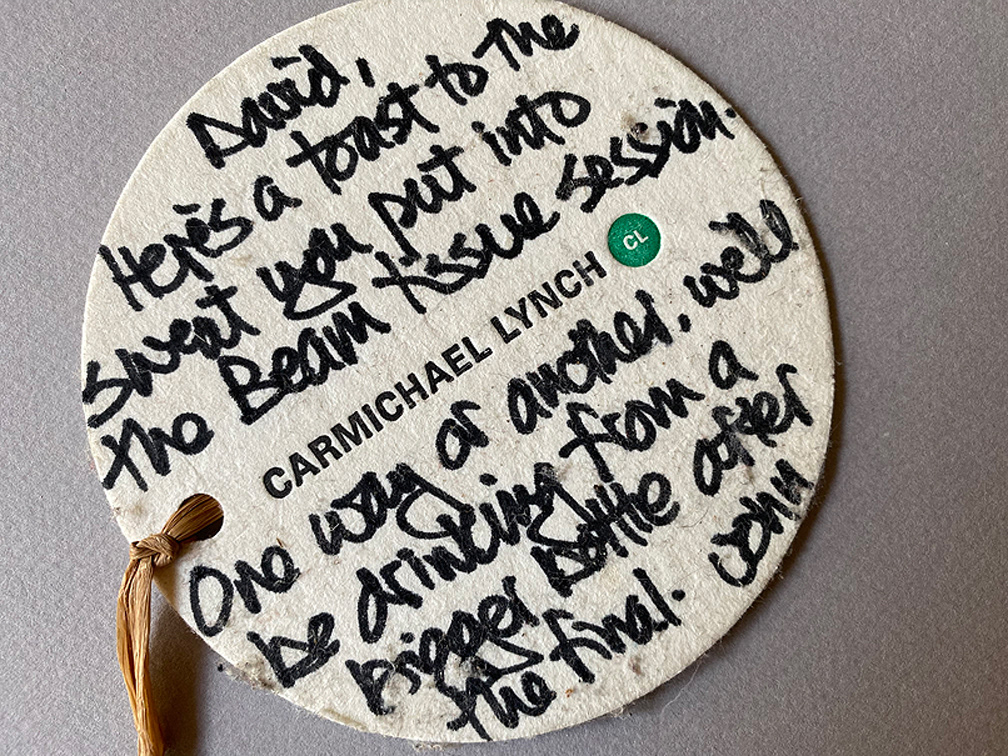 David,
Here's a toast to the
sweat you put into
the Beam tissue session.
CL
CARMICHAEL LYNCH
One way or another, we'll
be drinking from a
bigger bottle after
the final. John